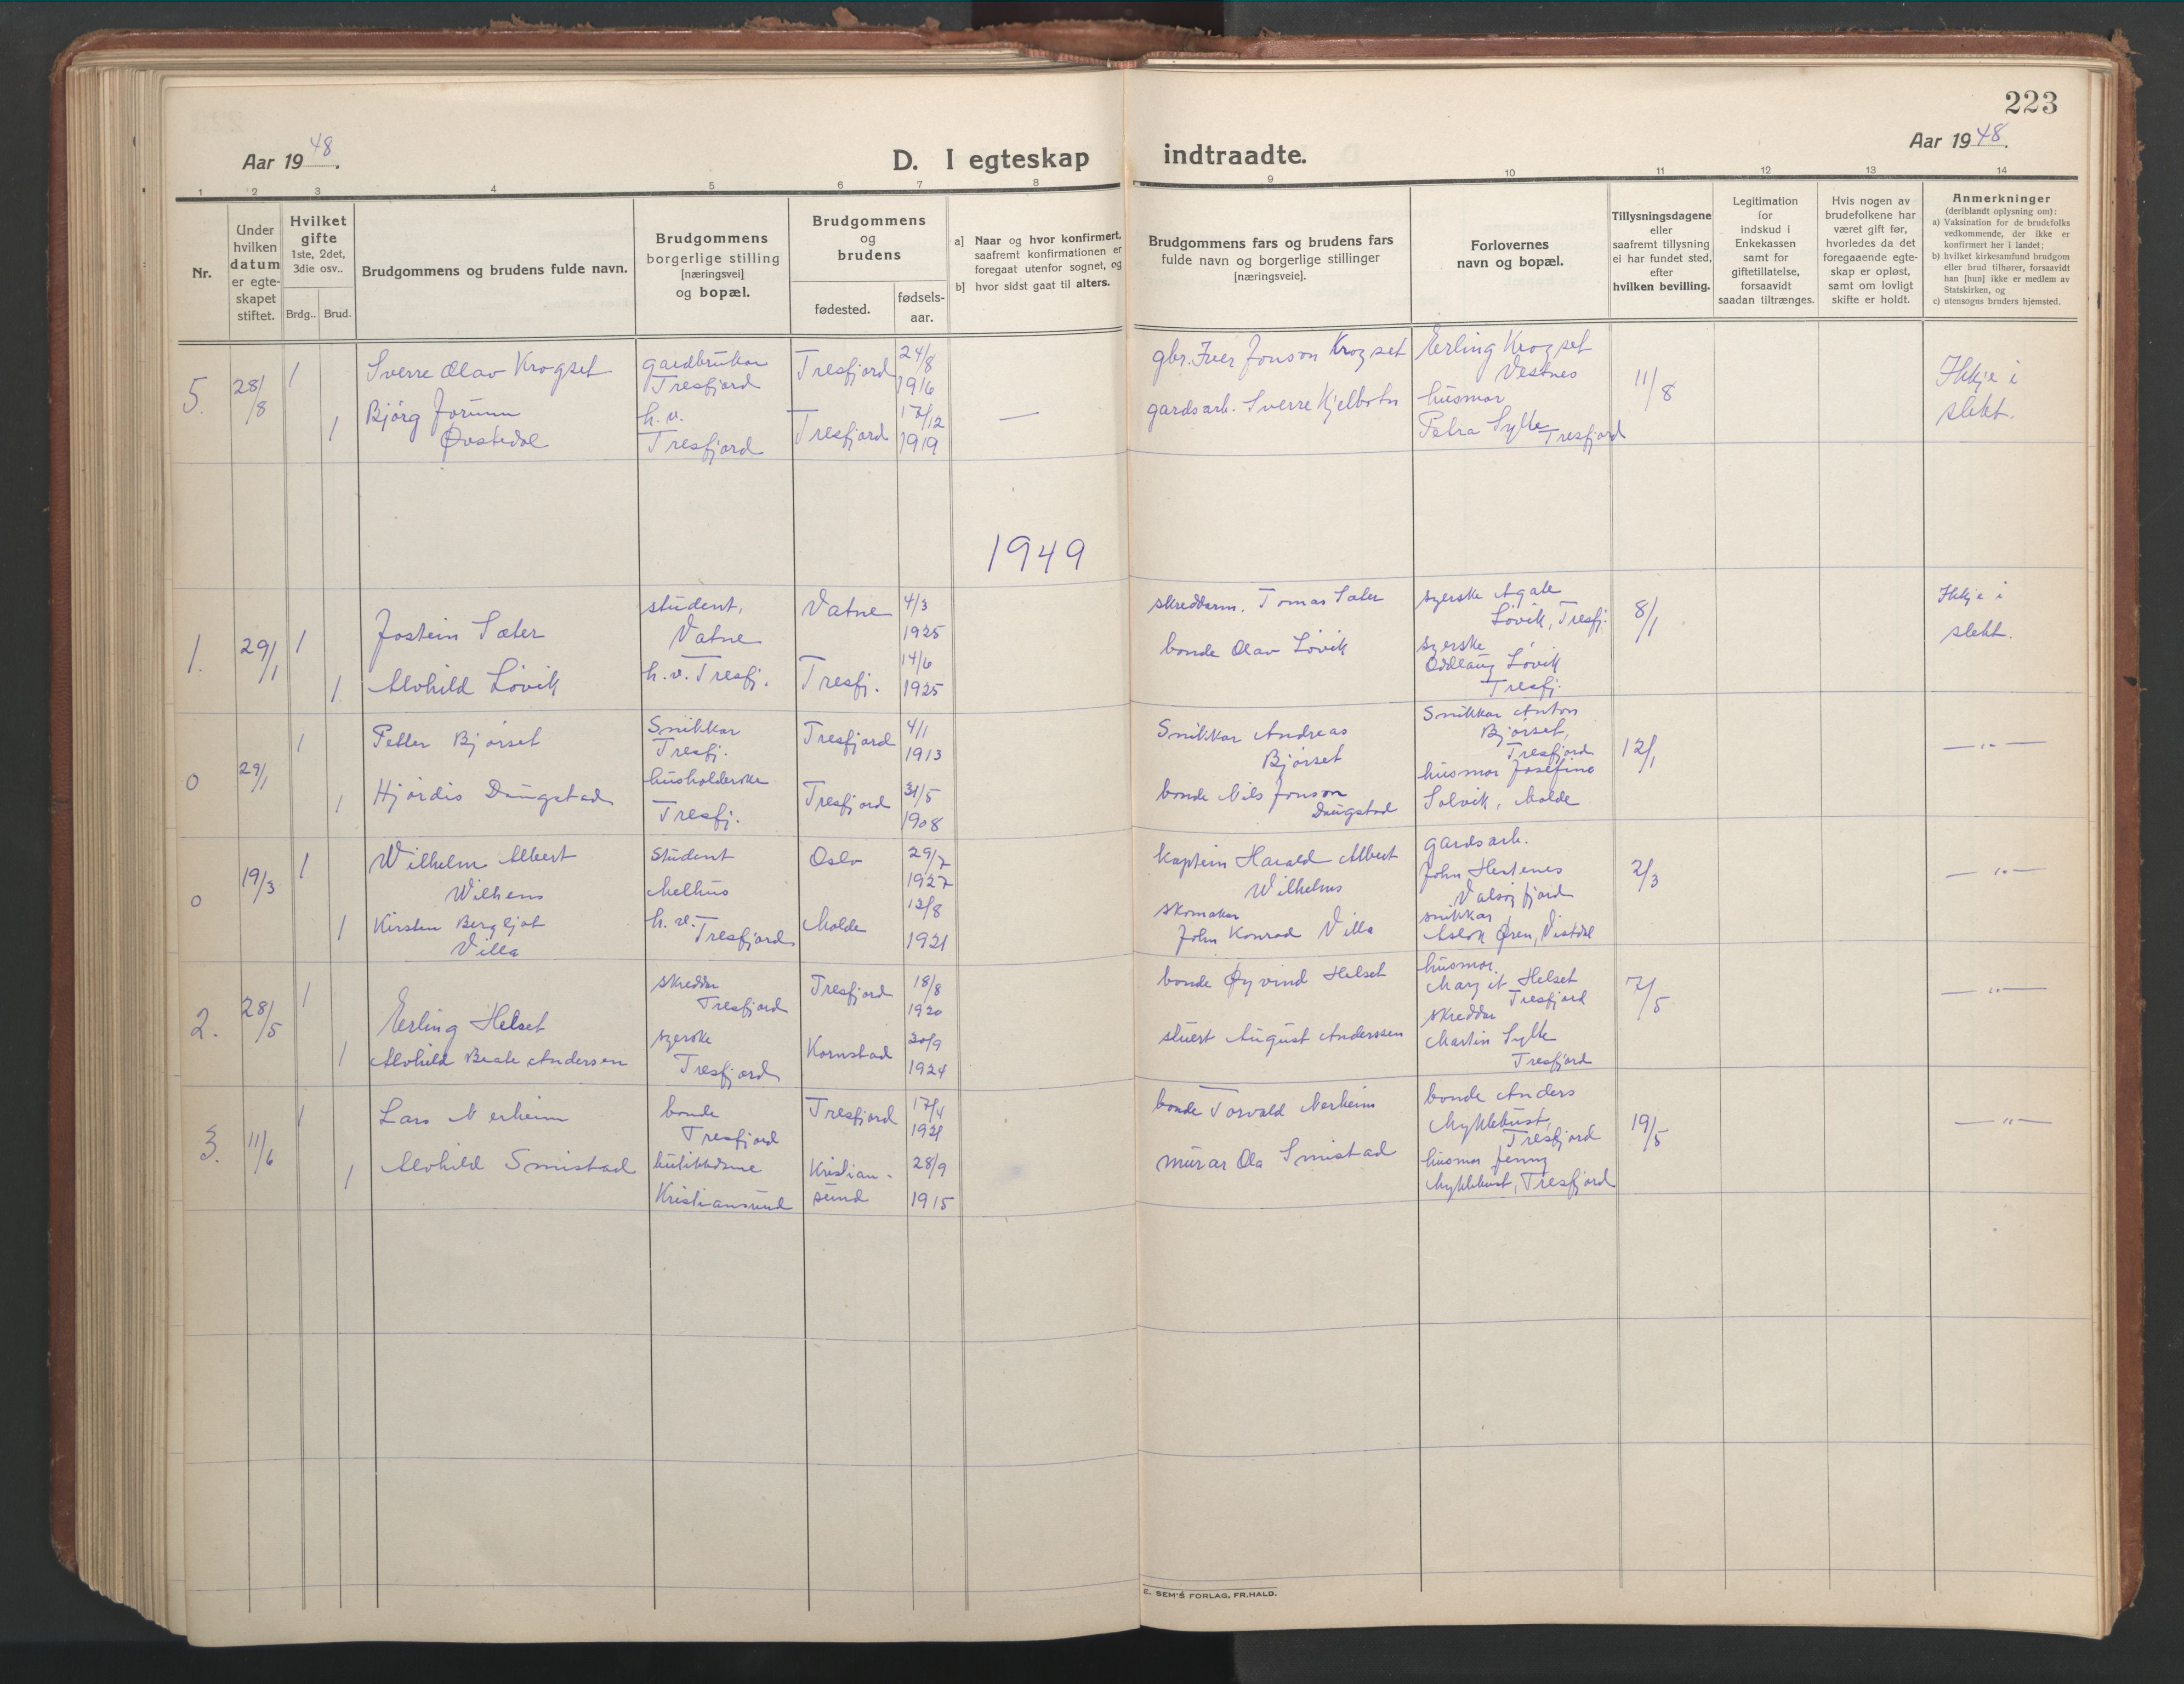 223
Aar 1948.
D. I egteskap indtraadte.
Aar 1948.
1 2 3 4 5 6 7 8 9 10 11 12 13 14
Nr.
Under
hvilken
datum
er egte-
skapet
stiftet.
Hvilket
gifte
1ste, 2det,
3die osv..
Brdg.. Brud.
Brudgommens og brudens fulde navn.
Brudgommens
borgerlige stilling
[næringsvei]
og bopæl.
Brudgommens
og
brudens
fødested.
fødsels-
aar.
a] Naar og hvor konfirmert,
saafremt konfirmationen er
foregaat utenfor sognet, og
b] hvor sidst gaat til alters.
Brudgommens fars og brudens fars
fulde navn og borgerlige stillinger
[næringsveie].
Forlovernes
navn og bopæl.
Tillysningsdagene
eller
saafremt tillysning
ei har fundet sted,
efter
hvilken bevilling.
Legitimation
for
indskud i
Enkekassen
samt for
giftetillatelse,
forsaavidt
saadan tiltrænges.
Hvis nogen av
brudefolkene har
været gift før,
hvorledes da det
foregaaende egte-
skap er opløst,
samt om lovligt
skifte er holdt.
Anmerkninger
(deriblandt oplysning om):
a) Vaksination for de brudefolks
vedkommende, der ikke er
konfirmert her i landet;
b) hvilket kirkesamfund brudgom
eller brud tilhører, forsaavidt
han [hun] ikke er medlem av
Statskirken, og
c) utensogns bruders hjemsted.
5. 28/8 1
Sverre Olav Krogset
gardbrukar
Tresfjord
Tresfjord
24/8
1916
1
Bjørg Jorunn
Øvstedal
h.v.
Tresfjord
Tresfjord
17/12
1919
—
gbr. Iver Jonson Krogset
gardsarb. Sverre Kjelbotn
Erling Krogset
Vestnes
husmor
Petra Sylte
Tresfjord
11/8
Ikkje i
slekt.
1949
1. 29/1 1
Jostein Sæter
student,
Vatne
Vatne
4/3
1925
1
Alvhild Løvik
h.v. Tresfj.
Tresfj.
14/6
1925
skreddarm. Tomas Sæter
bonde Olav Løvik
syerske Agate
Løvik, Tresfj.
syerske
Oddlaug Løvik
Tresfj.
8/1
Ikkje i
slekt.
0 29/1 1
Petter Bjørset
Snikkar
Tresfj.
Tresfjord
4/1
1913
1
Hjørdis Daugstad
husholderske
Tresfj.
Tresfjord
31/5
1908
Snikkar Andreas
Bjørset
bonde Nils Jonson
Daugstad
Snikkar Anton
Bjørset,
Tresfjord
husmor Josefine
Solvik, Molde
12/1
— „ —
0 19/3 1
Wilhelm Albert
Wilhems
Student
Melhus
Oslo
29/7
1927
1
Kirsten Bergljot
Villa
h.v.
Tresfjord
Molde
12/8
1921
kaptein Harald Albert
Wilhelms
skomakar
John Konrad Villa
gardsarb.
John Hestenes
Valsøyfjord
snikkar
Aslak Øren, Vistdal
2/3
— „ —
2. 28/5 1
Erling Helset
skreddar
Tresfjord
Tresfjord
18/8
1920
1
Alvhild Beate Andersen
syerske
Tresfjord
Kornstad
30/9
1924
bonde Øyvind Helset
stuert August Anderssen
husmor
Margit Helset
Tresfjord
skreddar
Martin Sylte
Tresfjord
7/5
— „ —
3. 11/6 1
Lars Nerheim
bonde
Tresfjord
Tresfjord
17/4
1921
1
Alvhild Smistad
butikkdame
Kristiansund
Kristian-
sund
28/9
1915
bonde Torvald Nerheim
murar Ola Smistad
bonde Anders
Myklebust,
Tresfjord
husmor Jenny
Myklebust, Tresfjord
19/5
— „ —
E. SEM'S FORLAG, FR.HALD.